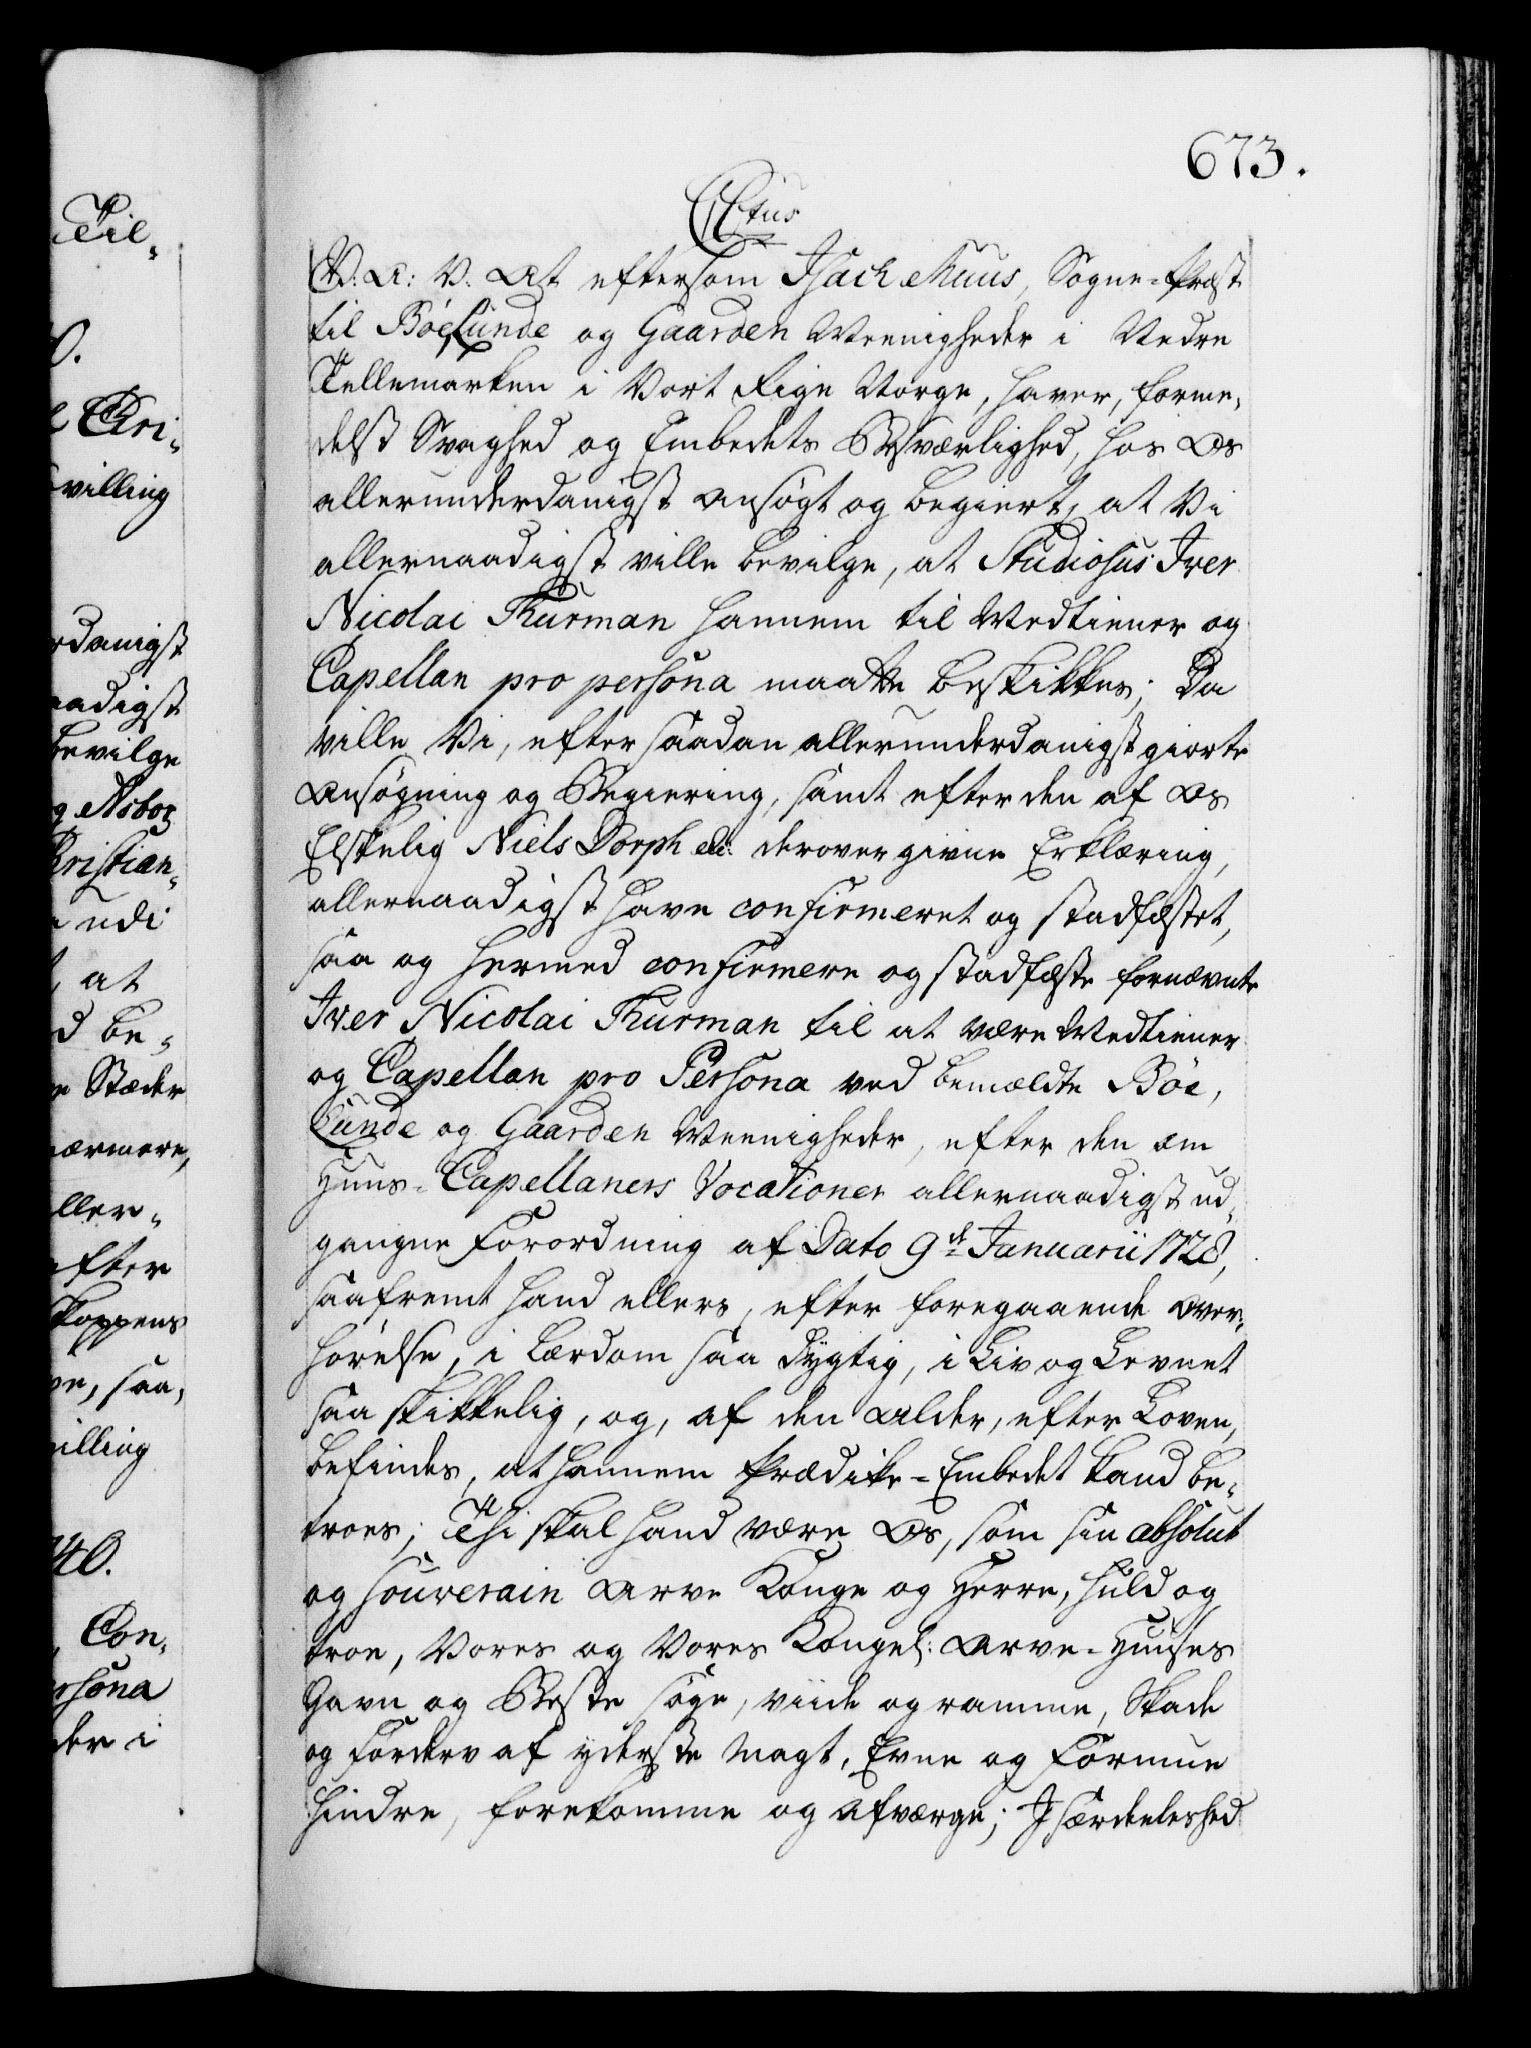 673.
CCtus
V. A: V. At eftersom Jsach Muus, Sogne-Præst
til Böe, Lunde og Gaarden Meenigheder i Nedre
Tellemarken i Vort Rige Norge, haver, forme,
delst Svaghed og Embedets Besværlighed, hos Os
allerunderdanigst ansøgt og begiert, at Vi
allernaadigst ville bevilge, at Studiosus Iver
Nicolai Thurman hannem til Medtiener og
Capellan pro persona maatte beskikkes; Da
ville Vi, efter saadan allerunderdanigst giorte
Ansøgning og Begiering, samt efter den af Os
Elskelig Niels Dorph etc: derover givne Erklæring,
allernaadigst have confirmeret og stadfæstet,
saa og hermed confirmere og stadfæste fornævnte
Iver Nicolai Thurman til at være Medtiener
og Capellan pro Persona ved bemældte Böe,
Lunde og Gaarden Meenigheder, efter den om
Huus-Capellaners Vocationer allernaadigst ud,
gangne Forordning af Dato 9de Januarii 1728,
saafremt hand ellers, efter foregaaende Over,
hørelse, i Lærdom saa dygtig, i Liv og Levnet
saa skikkelig, og, af den Alder, efter Loven,
befindes, at hannem Prædike-Embedet kand be,
troes; Thi skal hand være Os, som sin absolut
og souverain Arve Konge og Herre, huld og
troe, Vores og Vores Kongel: Arve-Huuses
Gavn og Beste søge, viide og ramme, Skade
og Forderv af yderste Magt, Evne og Formue
hindre, forekomme og afværge; J Særdeleshed
Til,
0.
Chri,
villing
rdanigst
aadigst
bevilge
og Nsbog
Christian,
udi
, at
d be,
Stæder
nærmere,
ller,
after
Koppens
ve, saa,
villing
40.
, Con,
rsona
der i